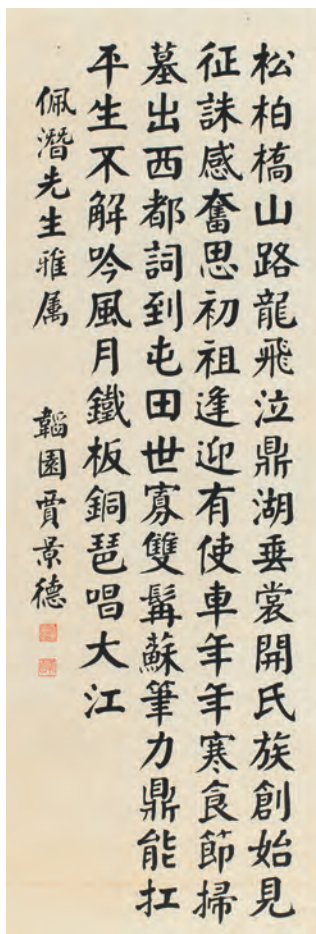 松柏橋山路龍飛泣鼎湖垂裳開氏族創始見
征誅感奮思初祖逢迎有使車年年寒食節掃
墓出西都詞到屯田世寡雙髯蘇筆力鼎能扛
平生不解吟風月鐵板銅琶唱大江
佩潛先生雅属
韜園賈景德